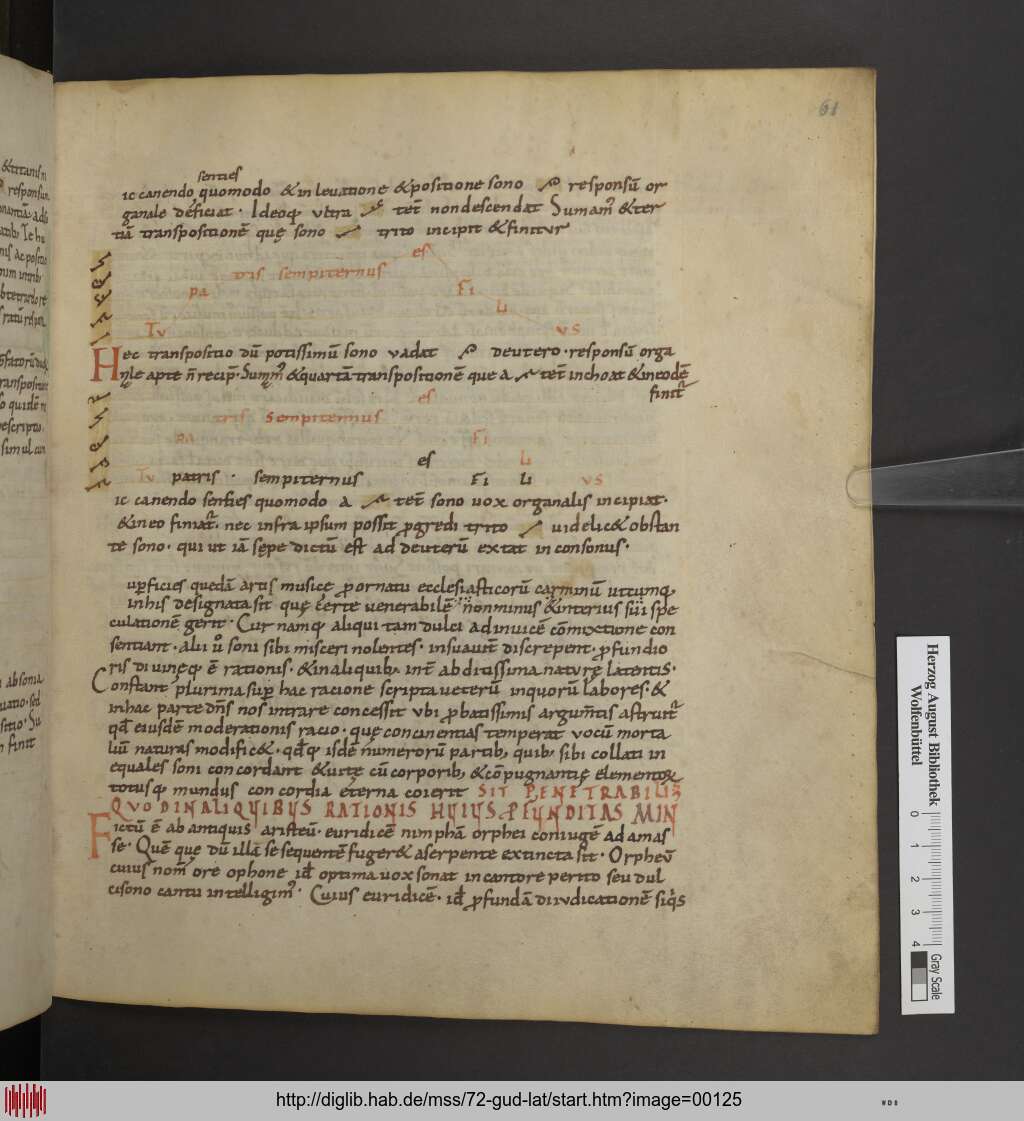 61
senties
ic canendo quomodo &in levatione &positione sono responsū or
ganale deficiat · Ideoq; vltra tet̄ non descendat Sumam᷒ &ter
tiā transpositionē quę sono trito incipit &finitur
es
tris sempiternus
pa Fi
li
Tu us
Hec transpositio dū potissimū sono vadat deutero · responsū orga
nųle apte n̄ recip̄ · &quartā transpositionē que a tet̄ inchoat &ineodē
finit᷒
es
tris Sempiternus
pa Fi
es li
Tu patris · sempiternus Fi li us
ic canendo senties quomodo a tet̄ sono uox organalis incipiat ·
&ineo finiat᷒ · nec infra ipsum possit ꝓgredi trito uidelic& obstan
te sono · qui ut iā sępe dictū est ad deuterū extat inconsonus ·
uꝑficies quedā artis musicę ꝓornatu ecclesiasticorū carminū utcumq;
inhis designata sit quę certe uenerabilē non minus &interius sui spe
culationē gerit · Cur namq; aliqui tam dulci adinuicē cōmixtione con
sentiant · alii u᷒o soni sibi misceri nolentes · insuauit̄ discrepent · ꝓfundio
ris diuinęq; ē rationis · &inaliquib; int̄ abditissima naturę latentis ·
Constant plurima suꝑ hac racione scripta ueterū inquorū labores · &
inhac parte dn̄s nos intrare concessit ubi ꝓbatissimis argum̄tis astruit᷒
qđ eiusdē moderationis racio · quę concinentias temperat vocū morta
liū naturas modific& · qđq; isdē numerorū partib; quib; sibi collati in
equales soni concordant &uitę cū corporib; &cōpugnantię elementoꝝ
totusq; mundus concordia ęterna coierit SIT PENETRABILIS
QVOD IN ALIQVIBVS RATIONIS HVIVS PFVNDITAS MIN
Fictū ē ab antiquis aristeū · euridicē nimphā orphei coniugē adamas
se · Quē quę dū illā se sequentē fuger& aserpente extincta sit · Orpheū
cuius nom̄ ore ophone id᷒ optima uox sonat incantore perito seu dul
cisono cantu intelligim᷒ · Cuius euridicē · id᷒ ꝓfundā diiudicationē siq̇s
Herzog August Bibliothek
Wolfenbüttel
0 1 2 3 4
Gray Scale
http://diglib.hab.de/mss/72-gud-lat/start.htm?image=00125